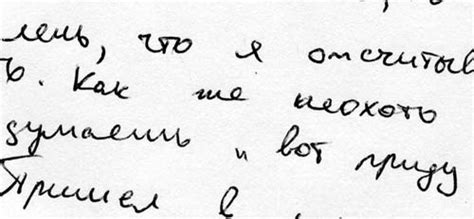 лень, что я отсчитыв
ь. Как же неохоть
думаешь " вот приду
Пришел в